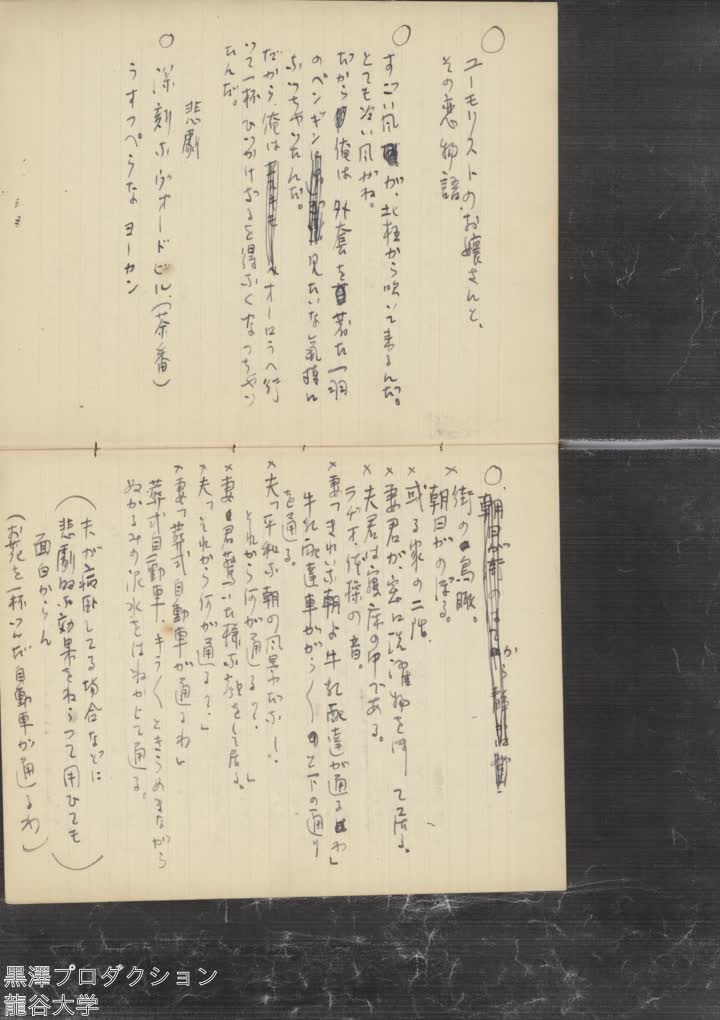 ○
ユーモリストのお嬢さんと、
その恋物語。
○
すごい風が、北極から吹いて来るんだ。
とても冷い風がね。
だから俺は外套を着た一羽
のペンギン見たいな気持に
なっちゃったんだ。
だから、俺はオーロラへ行
って一杯ひっかけざるを得なくなっちゃっ
たんだ。
悲劇
○ 深刻なヴォードビル、(茶番)
うすっぺらな ヨーカン
○
×街の鳥瞰。
朝日がのぼる。
×或る家の二階。
×妻君が、窓に洗濯物を干して居る。
×夫君は寝床の中である。
ラヂオ体操の音。
×妻「きれいな朝よ 牛乳配達が通るわ」
牛乳配達車ががらくと下の通り
を通る。
×夫「平和な朝の風景だなー.
それから何が通る?.」
×妻君驚いた様な顔をして居る。
×夫「それから何が通る?.」
×妻「葬式自動車が通るわ」
葬式自動車、きらくときらめきながら
ぬかるみの泥水をはねかして通る。
(夫が病臥してる場合などに
悲劇的な効果をねらって用ひても
面白からん)
(お花を一杯つんだ自動車が通るわ)
黒澤プロダクション
龍谷大学